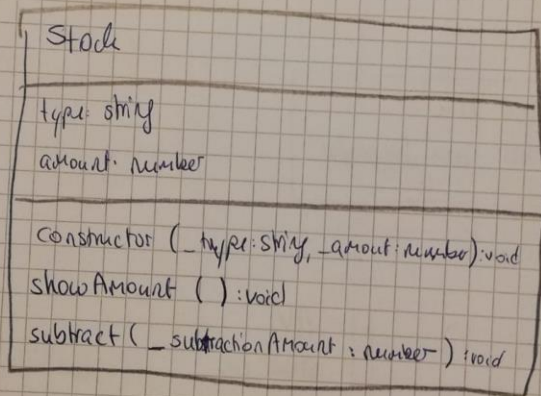 Stock
type: string
amount: number
constructor (_type: string, _amout: number): void
showAmount ( ) : void
subtract ( _subtractionAmount : number ) : void